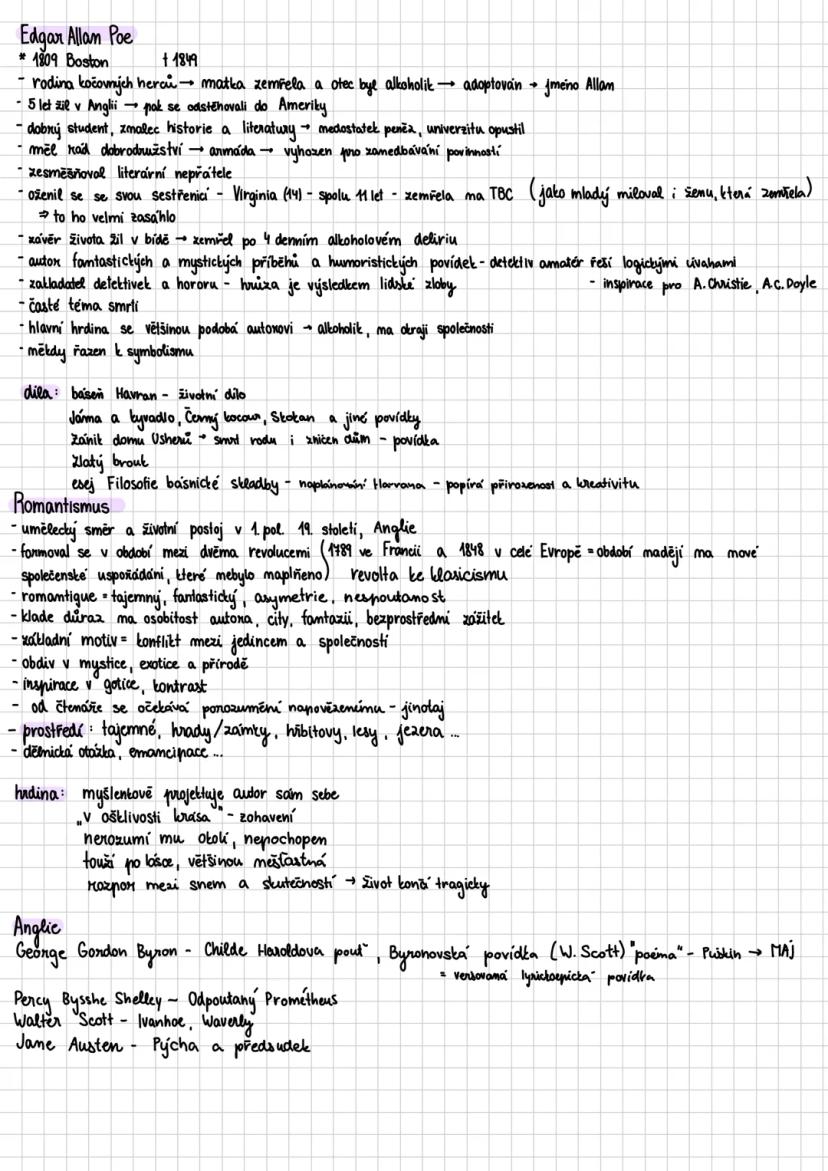 Edgar Allan Poe
* 1809 Boston † 1849
- rodina kočovných herců → matka zemřela a otec byl alkoholik → adoptován → jméno Allan
- 5 let žil v Anglii → pak se odstěhovali do Ameriky
- dobrý student, znalec historie a literatury → nedostatek peněz, univerzitu opustil
- měl rád dobrodružství → armáda → vyhozen pro zanedbávání povinností
- zesměšňoval literární nepřátele
- oženil se se svou sestřenicí - Virginia (14) - spolu 11 let - zemřela na TBC (jako mladý miloval i ženu, která zemřela)
⇒ to ho velmi zasáhlo
- závěr života žil v bídě → zemřel po 4 denním alkoholovém deliriu
- autor fantastických a mystických příběhů a humoristických povídek - detektiv amatér řeší logickými úvahami
- zakladatel detektivek a hororu - hrůza je výsledkem lidské zloby - inspirace pro A. Christie, A.C. Doyle
- časté téma smrti
- hlavní hrdina se většinou podobá autorovi → alkoholik, na okraji společnosti
- někdy řazen k symbolismu
díla: báseň Havran - životní dílo
Jáma a kyvadlo, Černý kocour, Skokan a jiné povídky
Zánik domu Usherů → smrt rodu i zničen dům - povídka
Zlatý brouk
esej Filosofie básnické skladby - naplánování Havrana - popírá přirozenost a kreativitu
Romantismus
- umělecký směr a životní postoj v 1. pol. 19. století, Anglie
- formoval se v období mezi dvěma revolucemi (1789 ve Francii a 1848 v celé Evropě = období nadějí na nové
společenské uspořádání, které nebylo naplněno) revolta ke klasicismu
- romantique = tajemný, fantastický, asymetrie, nespoutanost
- klade důraz na osobitost autora, city, fantazii, bezprostřední zážitek
- základní motiv = konflikt mezi jedincem a společností
- obdiv v mystice, exotice a přírodě
- inspirace v gotice, kontrast
- od čtenáře se očekává porozumění napovězenímu - jinotaj
- prostředí: tajemné, hrady/zámky, hřbitovy, lesy, jezera ...
- dělnická otázka, emancipace ...
hrdina: myšlenkově projektuje autor sám sebe
„v ošklivosti krása" - zohavení
nerozumí mu okolí, nepochopen
touží po lásce, většinou nešťastná
rozpor mezi snem a skutečností → život končí tragicky
Anglie
George Gordon Byron - Childe Haroldova pouť, Byronovská povídka (W. Scott) "poéma" - Puškin → MÁJ
= veršovaná lyrickoepická povídka
Percy Bysshe Shelley - Odpoutaný Prométheus
Walter Scott - Ivanhoe, Waverly
Jane Austen - Pýcha a předsudek